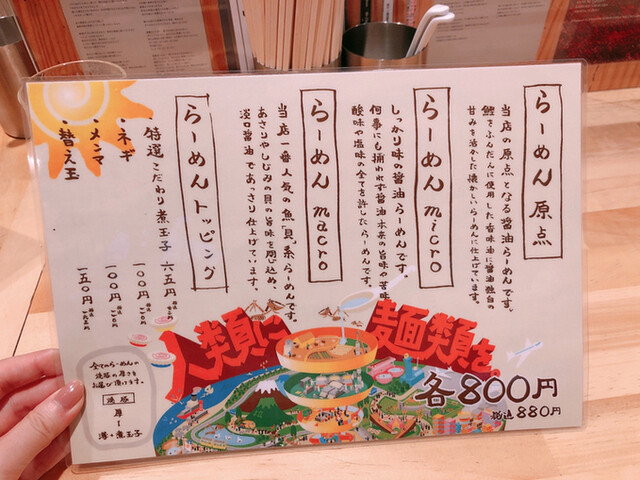 らーめん 原点
当店の原点となる醤油らーめんです。
鰹をふんだんに使用した香味油に醤油独自の
甘みを活かした懐かしいらーめんに仕上げています。
らーめん micro
しっかり味の醤油らーめんです。
何事にも捕われず醤油本来の旨味や苦味
酸味や塩味の全てを許したらーめんです。
らーめん macro
当店一番人気の魚貝系らーめんです。
あさりやしじみの貝の旨味を閉じ込め、
淡口醤油であっさり仕上げています。
らーめんトッピング
・特選こだわり煮玉子 六五円
・ネギ 一〇〇円
・メンマ 一〇〇円
・替え玉 一五〇円
人類に
麺類を。
各800円
税込880円
全てのらーめんの
お選び頂けます。
原